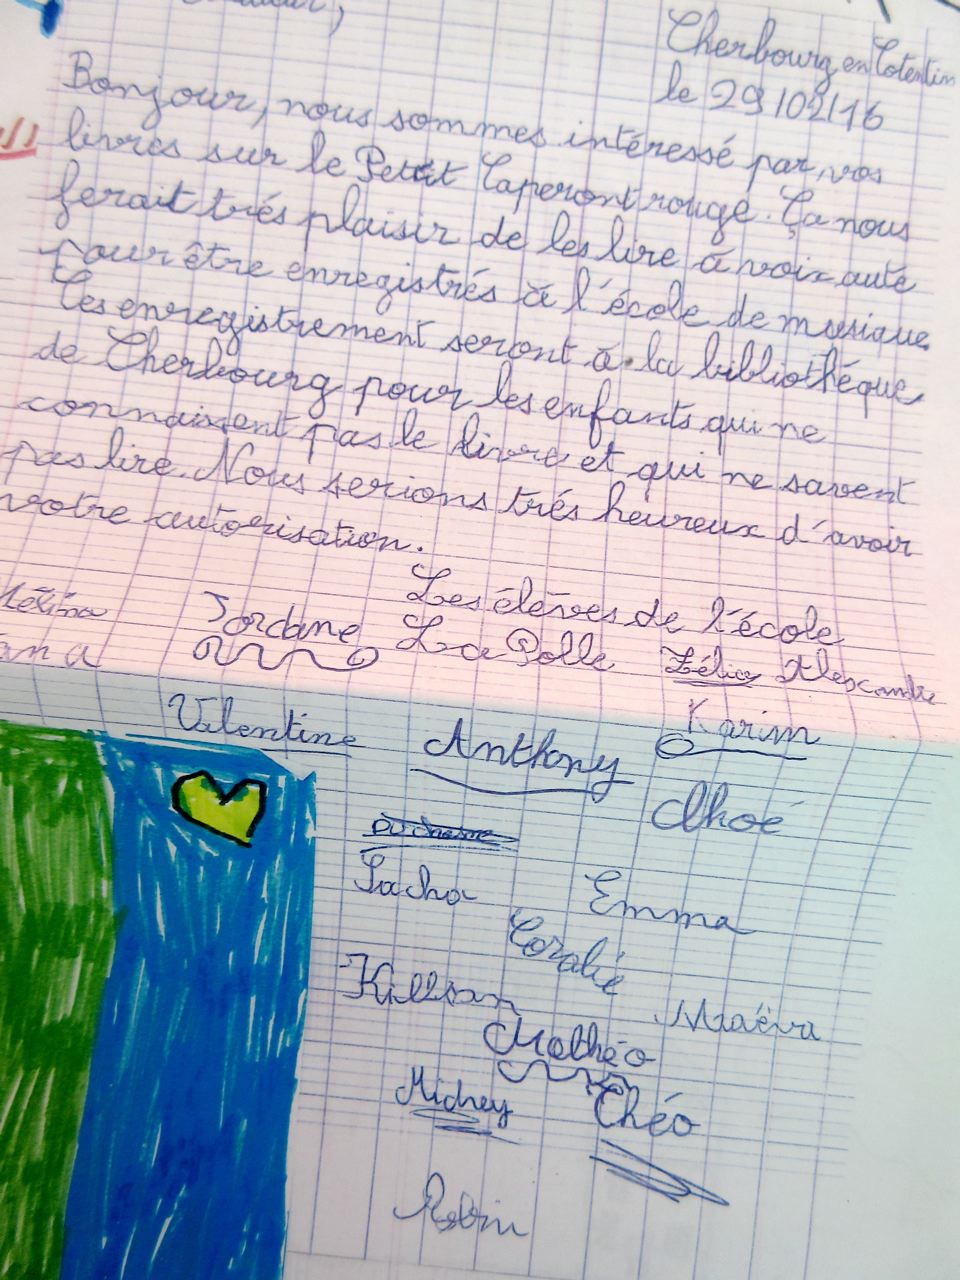 Cherbourg en Cotentin
le 29/02/16
Bonjour, nous sommes intéressé par vos
livres sur le Petit Caperont rouge. Ça nous
ferait trés plaisir de les lire à voix aute
pour être enregistrés à l'école de musique.
Ces enregistrement seront à la bibliothéque
de Cherbourg pour les enfants qui ne
connaissent pas le livre et qui ne savent
pas lire. Nous serions trés heureux d'avoir
votre autorisation.
Les éléves de l'école
La Polle
Mélina
Jordane
Zélie
Alexandre
Valentine
Anthony
Karim
Choé
Sacha
Emma
Coralie
Killian
Maéva
Mathéo
Midney
Théo
Robin